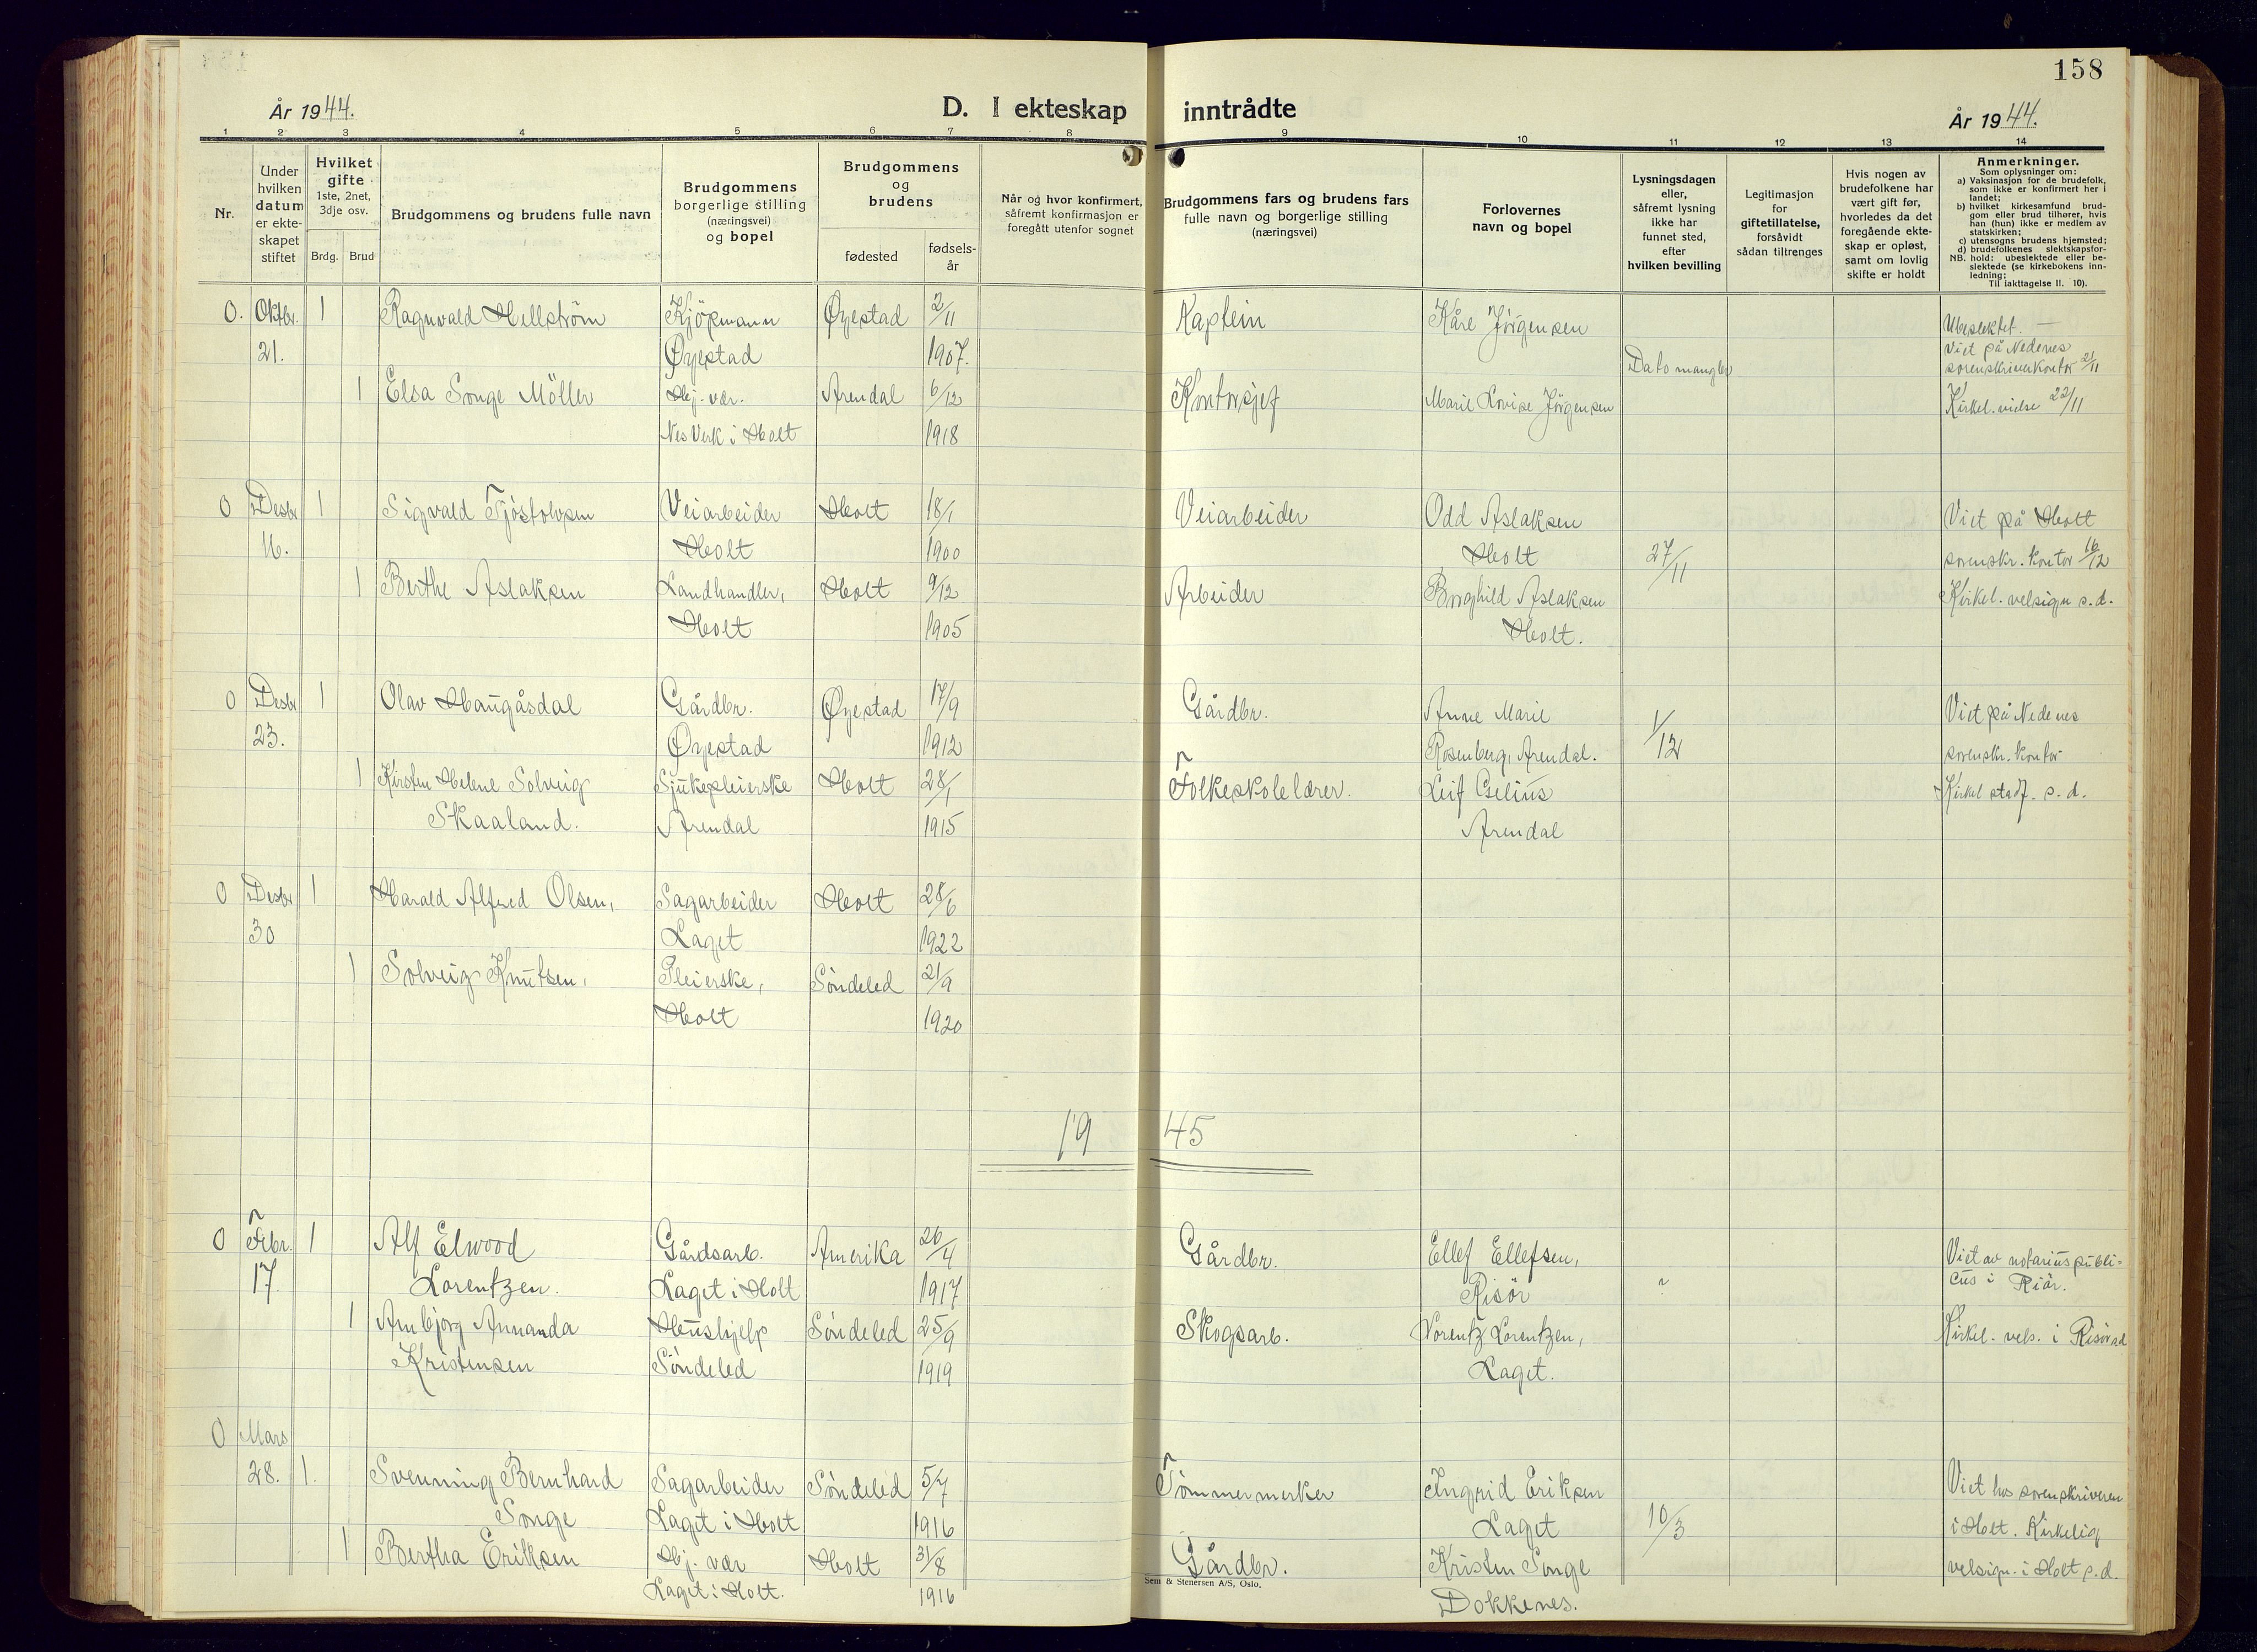 158
År 1944.
D. I ekteskap inntrådte
År 1944.
1 2 3 4 5 6 7 8 9 10 11 12 13 14
Nr.
Under
hvilken
datum
er ekte-
skapet
stiftet
Hvilket
gifte
1ste, 2net,
3dje osv.
Brdg. Brud
Brudgommens og brudens fulle navn
Brudgommens
borgerlige stilling
(næringsvei)
og bopel
Brudgommens
og
brudens
fødested
fødsels-
år
Når og hvor konfirmert,
såfremt konfirmasjon er
foregått utenfor sognet
Brudgommens fars og brudens fars
fulle navn og borgerlige stilling
(næringsvei)
Forlovernes
navn og bopel
Lysningsdagen
eller,
såfremt lysning
ikke har
funnet sted,
efter
hvilken bevilling
Legitimasjon
for
giftetillatelse,
forsåvidt
sådan tiltrenges
Hvis nogen av
brudefolkene har
vært gift før,
hvorledes da det
foregående ekte-
skap er opløst,
samt om lovlig
skifte er holdt
Anmerkninger.
Som oplysninger om:
a) Vaksinasjon for de brudefolk,
som ikke er konfirmert her i
landet;
b) hvilket kirkesamfund brud-
gom eller brud tilhører, hvis
han (hun) ikke er medlem av
statskirken;
c) utensogns brudens hjemsted;
d) brudefolkenes slektskapsfor-
NB. hold: ubeslektede eller be-
slektede (se kirkebokens inn-
ledning;
Til iakttagelse II. 10).
0. Oktbr. 1 Ragnvald Hellström Kjöpmann Øyestad 2/11 Kaptein Kåre Jørgensen Ubeslektet. —
21. Øyestad 1907. Dato mangler Viet på Nedenes
sorenskriverkontor 21/11
1 Elsa Songe Möller Hj. vær. Arendal 6/12 Kontorsjef Marie Lovise Jørgensen Kirkel. vielse 22/11
Nes Verk i Holt 1918
0 Desbr 1 Sigvald Tjöstolvsen Veiarbeider Holt 18/1 Veiarbeider Odd Aslaksen Viet på Holt
16. Holt 1900 Holt 27/11 sorenskr. kontor 16/12
1 Berthe Aslaksen Landhandler, Holt 9/12 Arbeider Borghild Aslaksen Kirkel. velsign s.d.
Holt 1905 Holt.
0 Desbr 1 Olav Haugåsdal Gårdbr. Øyestad 17/9 Gårdbr. Anne Marie 1/12 Viet på Nedenes
23. Øyestad 1912 Rosenberg, Arendal. sorenskr. kontor
1 Kirsten Helene Solveig Sjukepleierske Holt 28/1 Folkeskolelærer. Leif Gselius Kirkel stadf. s.d.
Skaaland. Arendal 1915 Arendal
0 Desbr 1 Harald Alfred Olsen, Sagarbeider Holt 28/6
30 Laget 1922
1 Solveig Knutsen, Pleierske, Söndeled 21/9
Holt 1920
19 45
0 Febr. 1 Alf Elwood Gårdsarb. Amerika 26/4 Gårdbr. Ellef Ellefsen, Viet av notarius publi-
17. Lorentzen. Laget i Holt 1917 Risör " cus i Risör.
1 Arnbjörg Amanda Hushjelp Söndeled 25/9 Skogsarb. Lorentz Lorentzen, Kirkel. vels. i Risör sd
Kristensen Söndeled 1919 Laget.
0 Mars
28. 1. Svenning Bernhard Sagarbeider Söndeled 5/7 Tömmermerker Ingrid Eriksen Viet hos sorenskriveren
Songe Laget i Holt 1916 Laget 10/3 i Holt. Kirkelig
1 Bertha Eriksen Hj. vær Holt 31/8 Gårdbr. Kristen Songe velsign. i Holt s.d.
Laget i Holt. 1916 Dokkenes.
Sem & Stenersen A/S, Oslo.